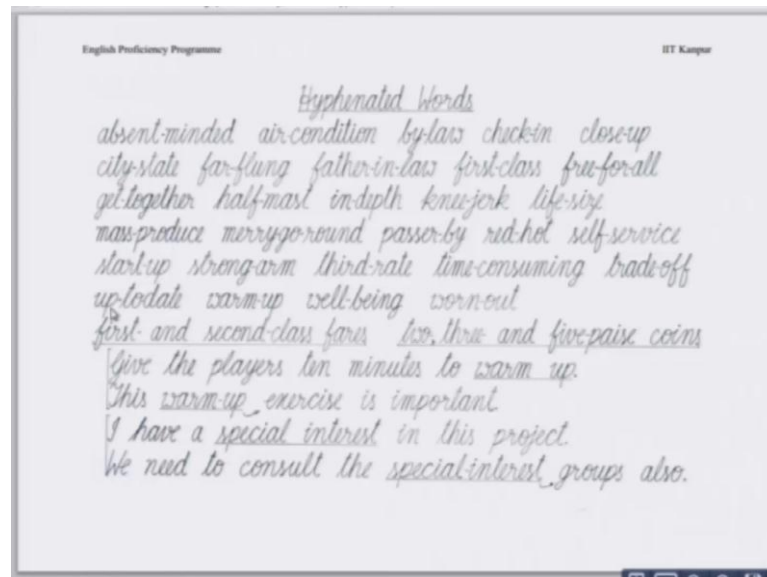 English Proficiency Programme IIT Kanpur
Hyphenated Words
absent-minded air-condition by-law check-in close-up
city-state far-flung father-in-law first-class free-for-all
get-together half-mast in-depth knee-jerk life-size
mass-produce merry-go-round passer-by red-hot self-service
start-up strong-arm third-rate time-consuming trade-off
up-to-date warm-up well-being worn-out
first- and second-class fares two, three- and five-paise coins
Give the players ten minutes to warm up.
This warm-up exercise is important.
I have a special interest in this project.
We need to consult the special-interest groups also.